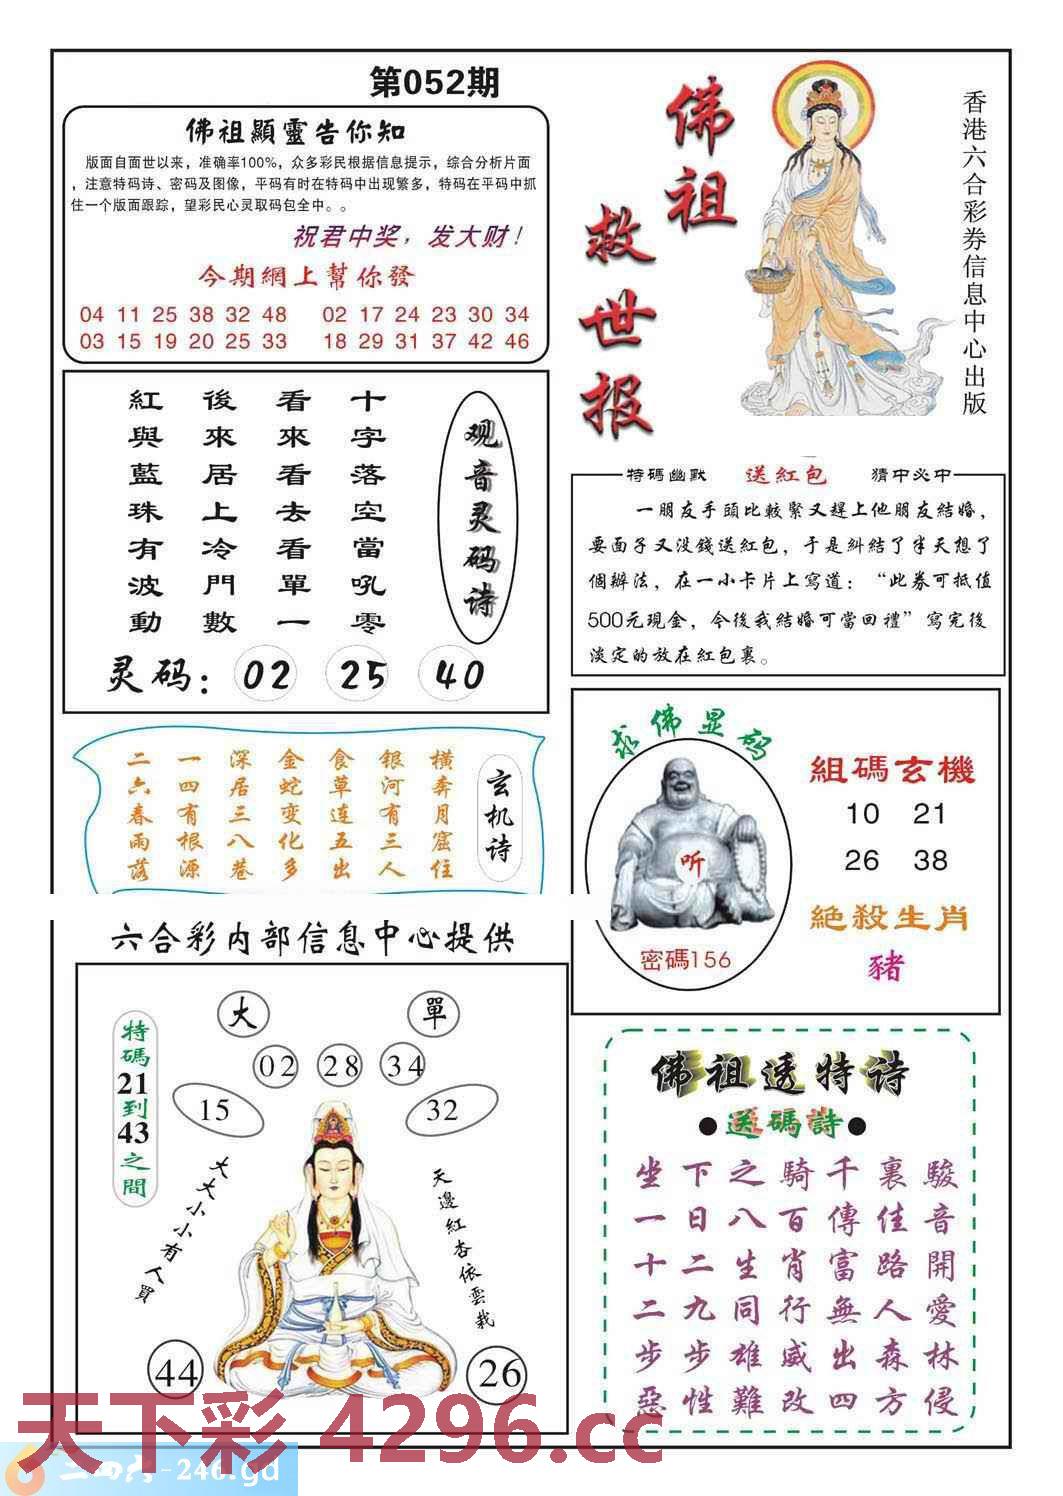 第052期
佛祖顯靈告你知
版面自面世以来，准确率100%，众多彩民根据信息提示，综合分析片面
，注意特码诗、密码及图像，平码有时在特码中出现繁多，特码在平码中抓
住一个版面跟踪，望彩民心灵取码包全中。。
祝君中奖，发大财！
今期網上幫你發
04 11 25 38 32 48 02 17 24 23 30 34
03 15 19 20 25 33 18 29 31 37 42 46
佛祖
救世报
香港六合彩券信息中心出版
观音灵码诗
十字落空當吼零
看來看去看單一
後來居上冷門數
紅與藍珠有波動
灵码：02 25 40
特碼幽默 送紅包 猜中必中
一朋友手頭比較緊又趕上他朋友結婚，
要面子又没錢送紅包，于是糾結了半天想了
個辦法，在一小卡片上寫道：“此券可抵值
500元現金，今後我結婚可當回禮”寫完後
淡定的放在紅包裏。
玄机诗
橫奔月窟住
银河有三人
食草连五出
金蛇变化多
深居三八巷
一四有根源
二六春雨落
求佛显码
听
密碼156
組碼玄機
10 21
26 38
絕殺生肖
豬
六合彩内部信息中心提供
大 單
02 28 34
15 32
特碼21到43之間
大大小小有人買
天邊紅杏依雲栽
44 26
佛祖透特诗
●送碼詩●
坐下之騎千裏駿
一日八百傳佳音
十二生肖富路開
二九同行無人愛
步步雄威出森林
惡性難改四方侵
天下彩 4296.cc
二四六-246.gd